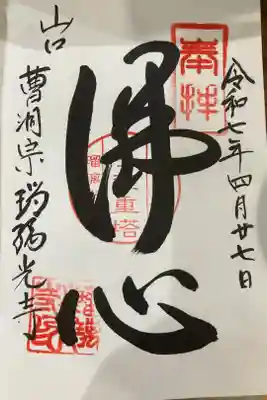 奉拝
令和七年四月廿七日
佛心
五重塔
瑠璃光
山口
曹洞宗瑠璃光寺